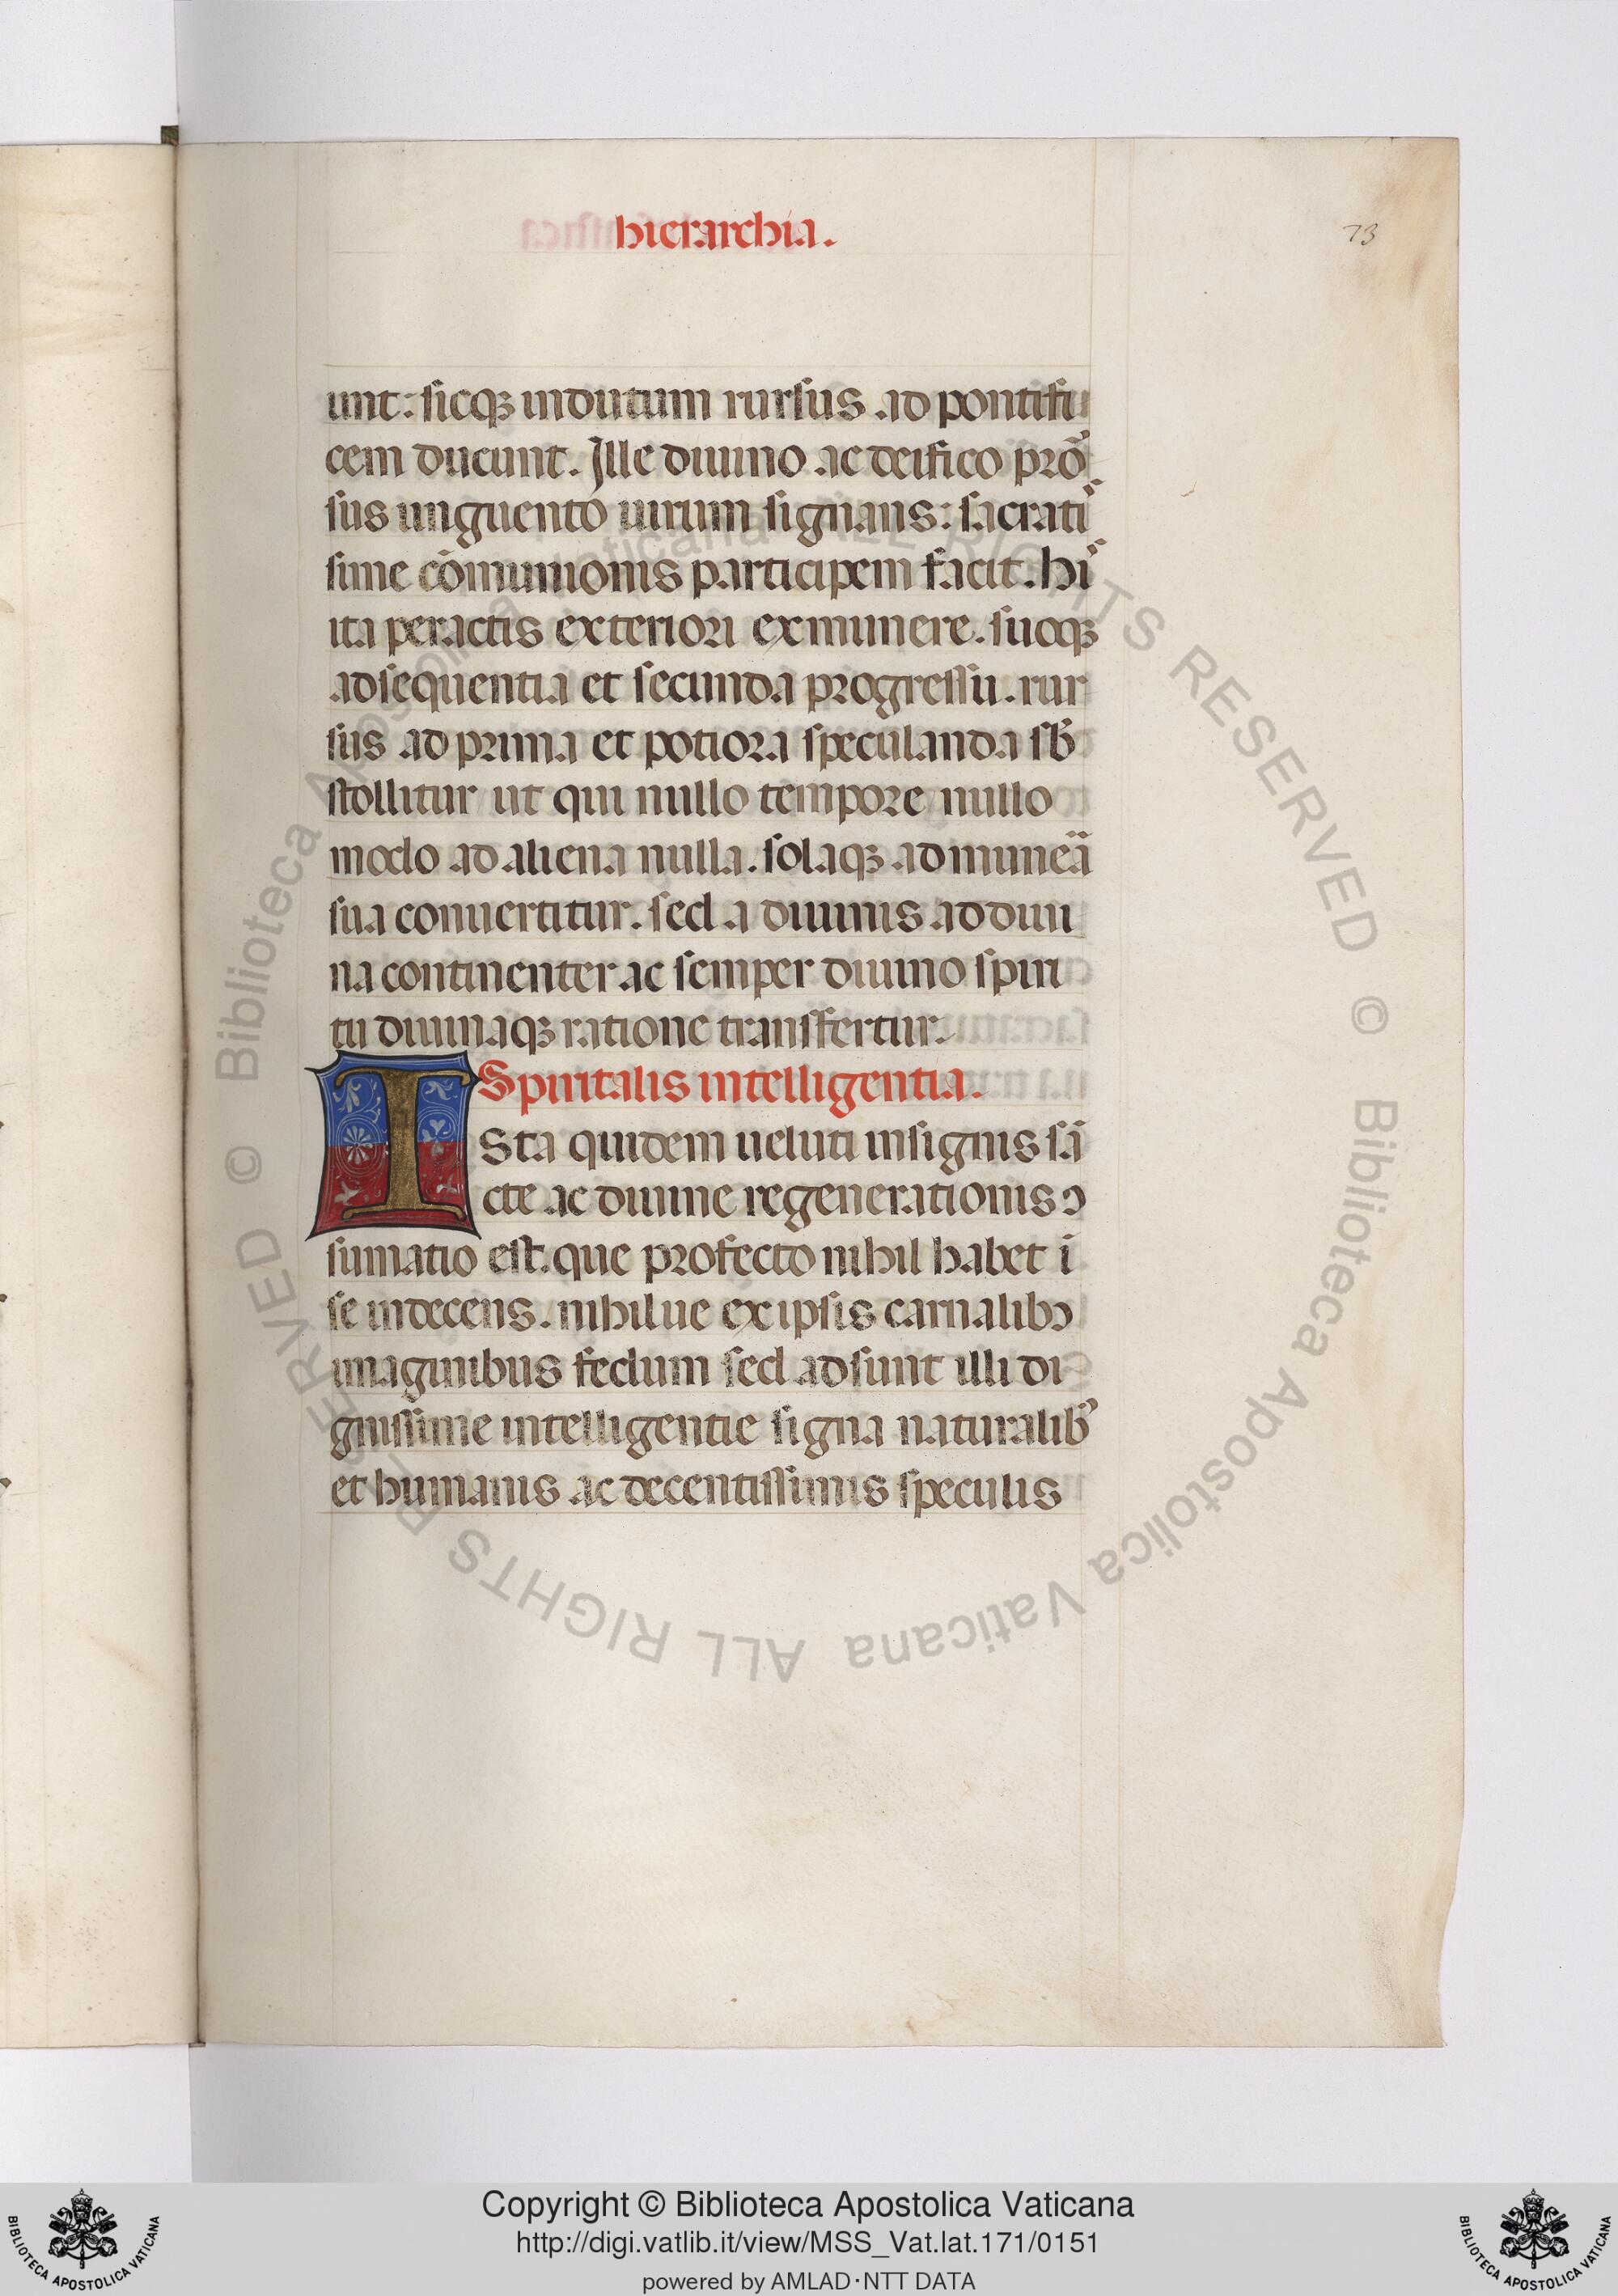 hierarchia.
73
unt: sicqꝫ indutum rursus ad pontifi
cem ducunt. Ille diuino ac deifico prō
sus unguento uirum signans: sacrati
sime cōmunionis participem facit. hi
ita peractis exteriori ex munere. suoqꝫ
ad sequentia et secunda progressu. rur
sus ad prima et potiora speculanda sb̄
stollitur ut qui nullo tempore nullo
modo ad aliena nulla. solaqꝫ ad muneā
sua conuertitur. sed a diuinis ad diui
na continenter ac semper diuino spiri
tu diuinaqꝫ ratione transfertur.
Spiritalis intelligentia.
ISta quidem ueluti insignis sā
cte ac diuine regenerationis ↄ
sumatio est. que profecto nihil habet ī
se indecens. nihilue ex ipsis carnalibꝫ
imaginibus fedum sed adsunt illi di
gnissime intelligentie signa naturalibꝰ
et humanis ac decentissimis speculis
Copyright © Biblioteca Apostolica Vaticana
http://digi.vatlib.it/view/MSS_Vat.lat.171/0151
powered by AMLAD·NTT DATA
BIBLIOTECA APOSTOLICA VATICANA
BIBLIOTECA APOSTOLICA VATICANA
© Biblioteca Apostolica Vaticana ALL RIGHTS RESERVED
© Biblioteca Apostolica Vaticana ALL RIGHTS RESERVED